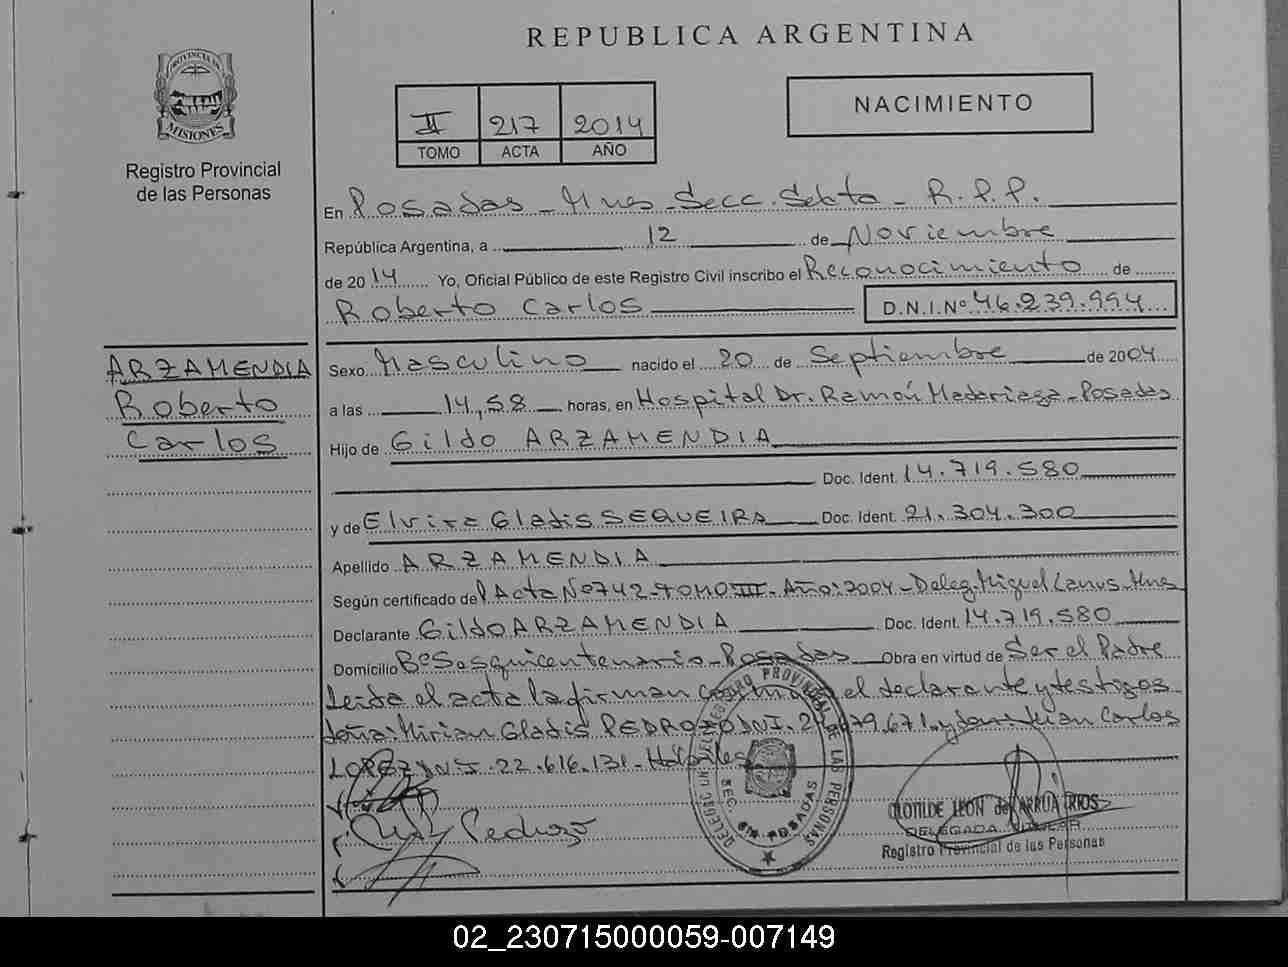 REPUBLICA ARGENTINA
PROVINCIA DE
MISIONES
Registro Provincial
de las Personas
II 217 2014
TOMO ACTA AÑO
NACIMIENTO
En Posadas - Mnes - Secc. Sexta - R.P.P.
República Argentina, a 12 de Noviembre
de 2014 Yo, Oficial Público de este Registro Civil inscribo el Reconocimiento de
Roberto Carlos D.N.I.Nº 46.239.994
ARZAMENDIA
Roberto
Carlos
Sexo Masculino nacido el 20 de Septiembre de 2004
a las 14,58 horas, en Hospital Dr. Ramón Madariaga - Posadas
Hijo de Gildo ARZAMENDIA
Doc. Ident. 14.719.580
y de Elvira Gladis SEQUEIRA Doc. Ident. 21.304.300
Apellido ARZAMENDIA
Según certificado del Acta Nº 742 - TOMO III - Año: 2004 - Deleg. Miguel Lanus. Mnes
Declarante Gildo ARZAMENDIA Doc. Ident. 14.719.580
Domicilio Bº Sesquicentenario - Posadas Obra en virtud de Ser el Padre
Leida el acta la firman conmigo el declarante y testigos
doña: Mirian Gladis PEDROZO DNI. 679.671 y don: Juan Carlos
LOPEZ DNI. 22.616.131 - Hábiles
Pedrozo
REGISTRO PROVINCIAL DE LAS PERSONAS
SEC. 6ta POSADAS
CLOTILDE LEON de ARRUA RIOS
DELEGADA TITULAR
Registro Provincial de las Personas
02_230715000059-007149